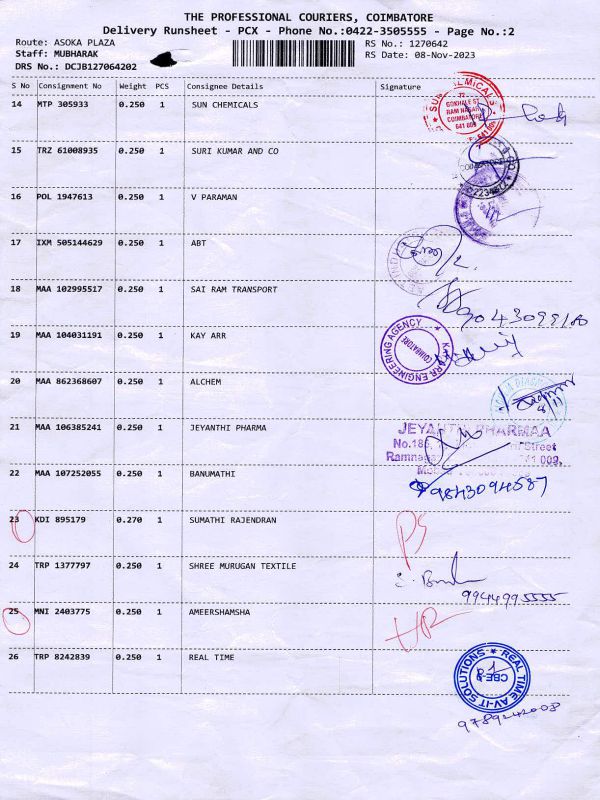 THE PROFESSIONAL COURIERS, COIMBATORE
Delivery Runsheet - PCX - Phone No.:0422-3505555 - Page No.:2
Route: ASOKA PLAZA
RS No.: 1270642
Staff: MUBHARAK
RS Date: 08-Nov-2023
DRS No.: DCJB127064202
S No Consignment No Weight PCS Consignee Details Signature
14 MTP 305933 0.250 1 SUN CHEMICALS
SUN CHEMICALS
GOKHALE ST
RAM NAGAR
COIMBATORE
641 009
15 TRZ 61008935 0.250 1 SURI KUMAR AND CO
16 POL 1947613 0.250 1 V PARAMAN
17 IXM 505144629 0.250 1 ABT
18 MAA 102995517 0.250 1 SAI RAM TRANSPORT
9043099180
19 MAA 104031191 0.250 1 KAY ARR
KAY ARR ENGINEERING AGENCY
COIMBATORE
20 MAA 862368607 0.250 1 ALCHEM
8/11
21 MAA 106385241 0.250 1 JEYANTHI PHARMA
JEYANTHI PHARMAA
No.185, Street
Ramnagar 641 009,
22 MAA 107252055 0.250 1 BANUMATHI
9843094587
23 KDI 895179 0.270 1 SUMATHI RAJENDRAN
PS
24 TRP 1377797 0.250 1 SHREE MURUGAN TEXTILE
9944995555
25 MNI 2403775 0.250 1 AMEERSHAMSHA
26 TRP 8242839 0.250 1 REAL TIME
REAL TIME AV-IT SOLUTIONS
CBE-9
9789242008